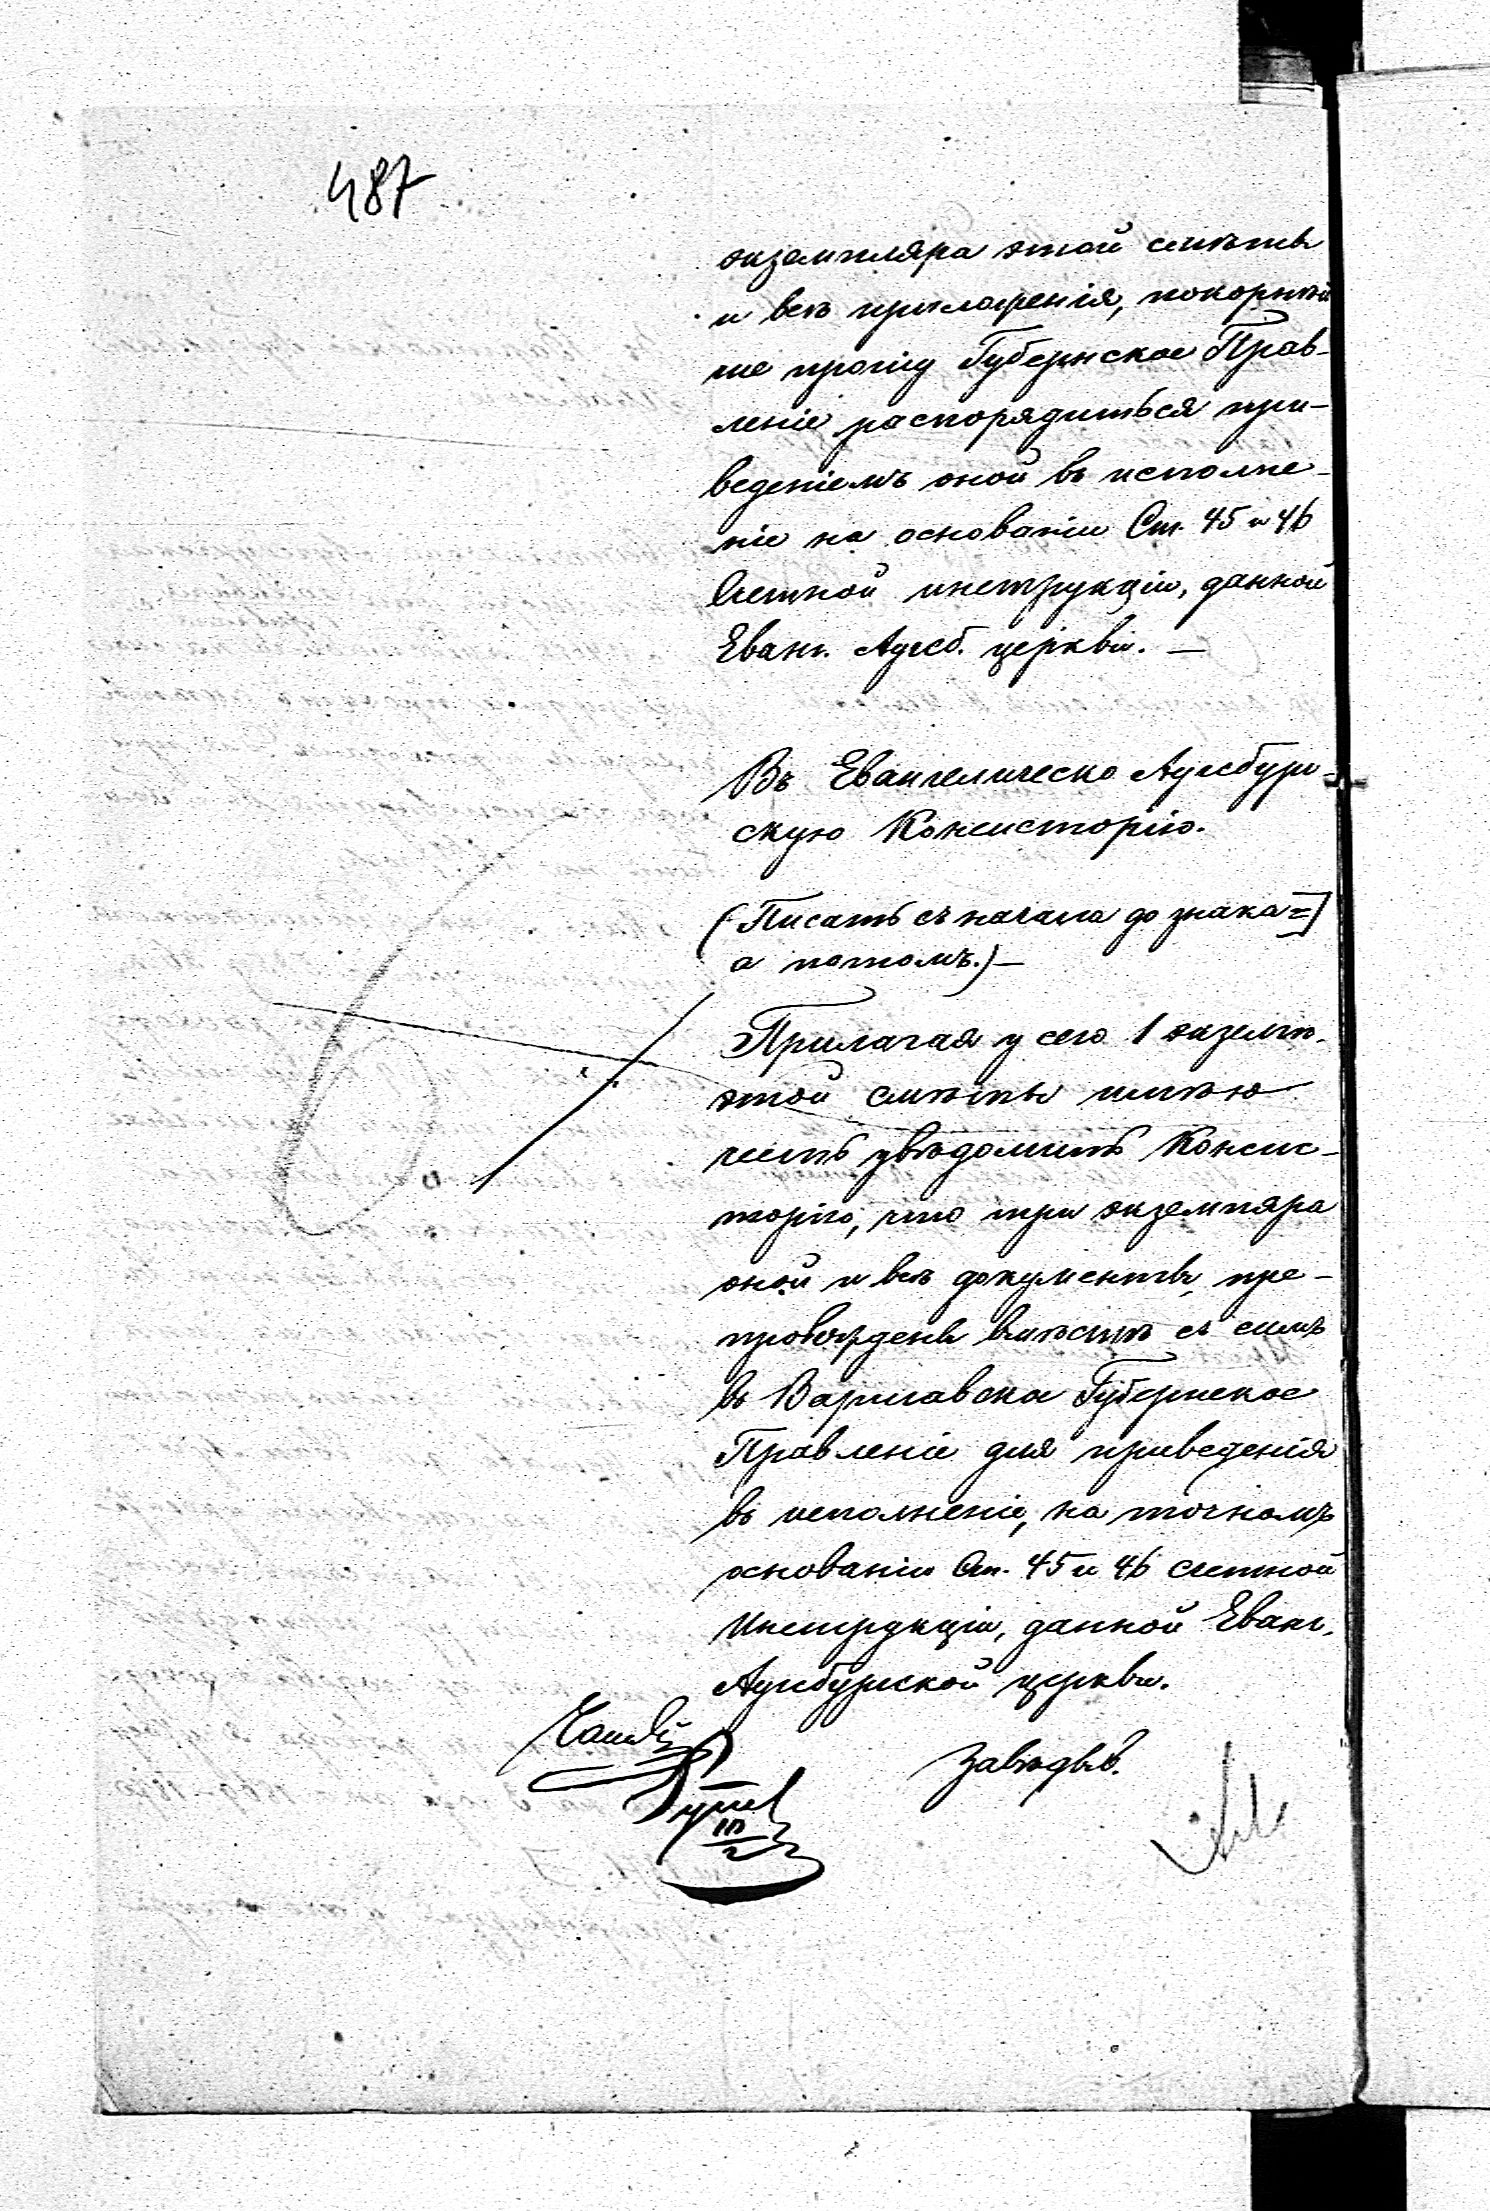 487
экземпляра этой смѣты
и всѣ приложенія, покорнѣй
ше прошу Губернское Прав-
леніе распорядиться при-
веденіемъ оной въ исполне-
ніе на основаніи Ст. 45 и 46
Счетной инструкціи, данной
Еванг. Аугсб. церкви. —
Въ Евангелическо Аугсбург-
скую Консисторію.
(Писать съ начала до знака =]
а потомъ.) —
Прилагая у сего 1 экземп.
этой смѣты имѣю
честь увѣдомить Консис-
торію, что три экземпяра
оной и всѣ документы, пре-
провождены вмѣстѣ съ симъ
въ Варшавское Губернское
Правленіе для приведенія
въ исполненіе, на точномъ
основаніи Ст. 45 и 46 счетной
Инструкціи, данной Еванг.
Аугсбургской церкви.
Завѣдыв.